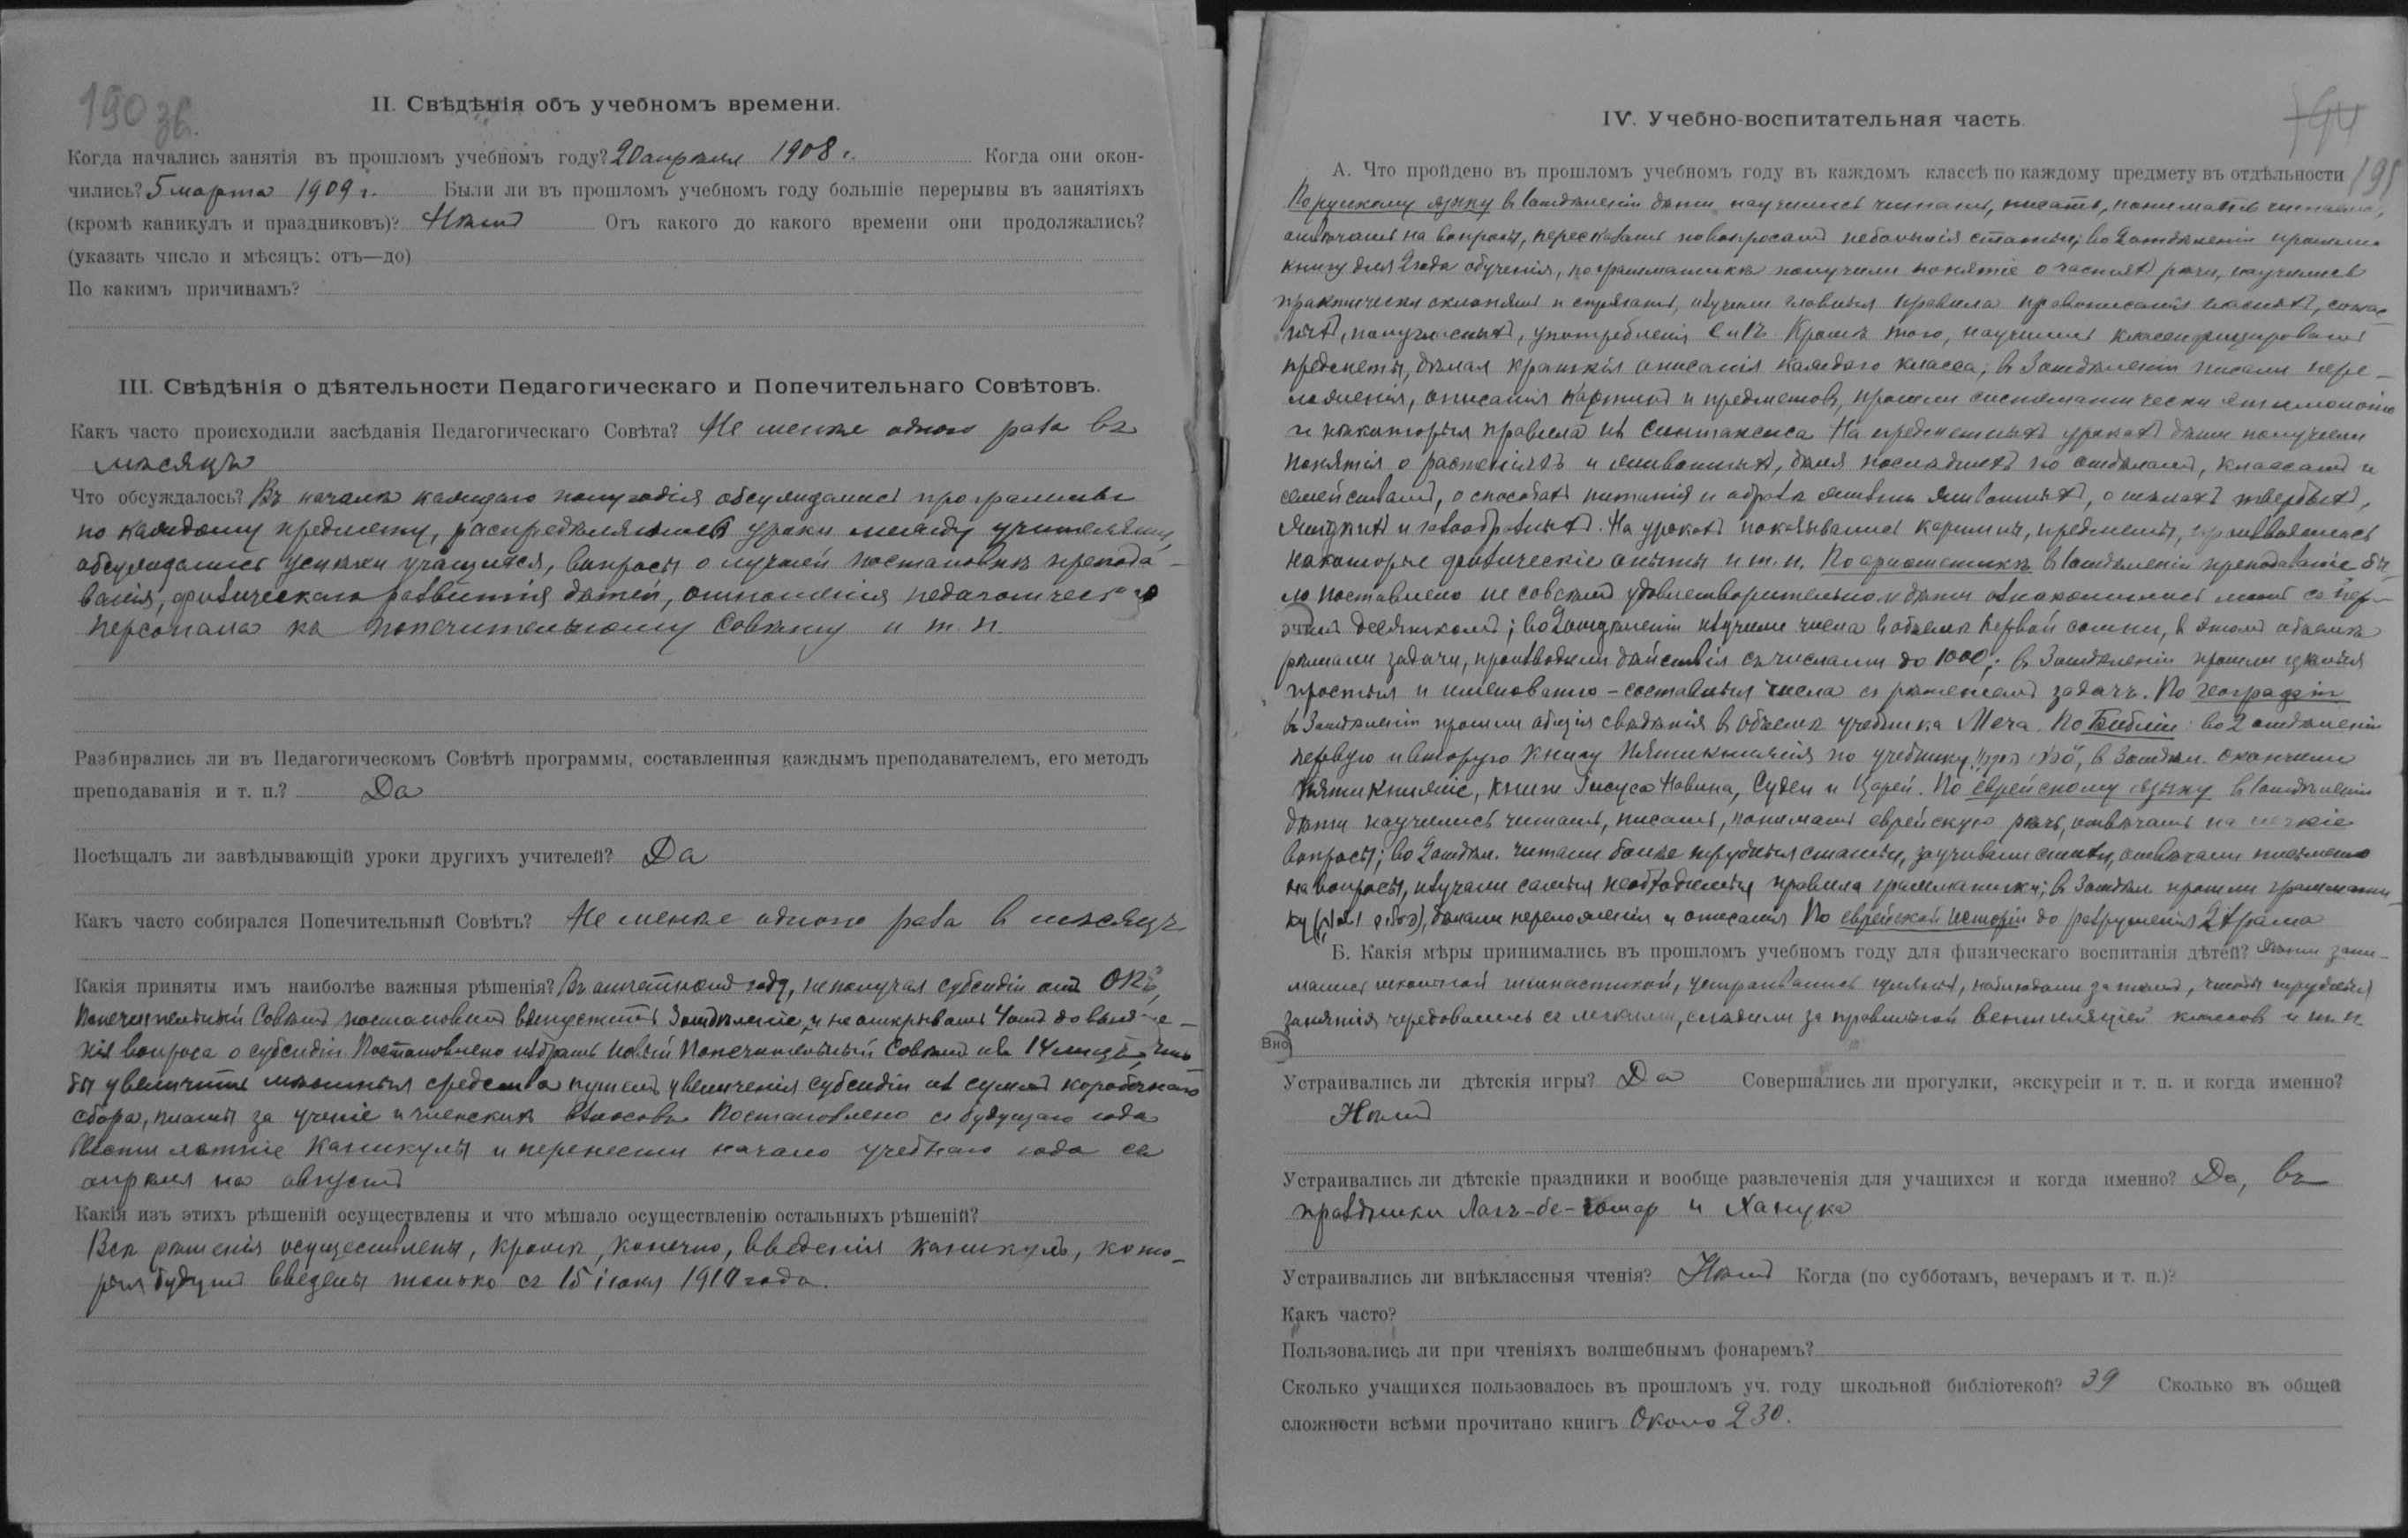 190 об.
II. Свѣдѣнія объ учебномъ времени.
Когда начались занятія въ прошломъ учебномъ году? 20 апрѣля 1908 г. Когда они окон-
чились? 5 марта 1909 г. Были ли въ прошломъ учебномъ году большіе перерывы въ занятіяхъ
(кромѣ каникулъ и праздниковъ)? Нѣтъ Отъ какого до какого времени они продолжались?
(указать число и мѣсяцъ: отъ—до)
По какимъ причинамъ?
III. Свѣдѣнія о дѣятельности Педагогическаго и Попечительнаго Совѣтовъ.
Какъ часто происходили засѣданія Педагогическаго Совѣта? Не менѣе одного раза въ
мѣсяцъ
Что обсуждалось? Въ началѣ каждаго полугодія обсуждались программы
по каждому предмету, распредѣлялись уроки между учителями,
обсуждались успѣхи учащихся, вопросы о лучшей постановкѣ препода-
ванія, физическаго развитія дѣтей, отношенія педагогическаго
персонала къ попечительному Совѣту и т. п.
Разбирались ли въ Педагогическомъ Совѣтѣ программы, составленныя каждымъ преподавателемъ, его методъ
преподаванія и т. п.? Да
Посѣщалъ ли завѣдывающій уроки другихъ учителей? Да
Какъ часто собирался Попечительный Совѣтъ? Не менѣе одного раза в мѣсяцъ
Какія приняты имъ наиболѣе важныя рѣшенія? Въ отчетномъ году, не получая субсидіи отъ ОПЕ,
Попечительный Совѣтъ постановил выпустить 3 отдѣленіе и не открывать 4 отд до выясне-
нія вопроса о субсидіи. Постановлено избрать новый Попечительный Совѣтъ из 14 лицъ, что
бы увеличить мѣстныя средства путемъ увеличенія субсидіи из суммъ коробочнаго
сбора, платы за ученіе и членскихъ взносовъ. Постановлено съ будущаго года
ввести лѣтніе каникулы и перенести начало учебнаго года съ
апрѣля на августъ
Какія изъ этихъ рѣшеній осуществлены и что мѣшало осуществленію остальныхъ рѣшеній?
Всѣ рѣшенія осуществлены, кромѣ, конечно, введенія каникулъ, кото-
рыя будутъ введены только съ 15 іюня 1910 года.
IV. Учебно-воспитательная часть.
191
А. Что пройдено въ прошломъ учебномъ году въ каждомъ классѣ по каждому предмету въ отдѣльности
По русскому языку в 1 отдѣленіи дѣти научились читать, писать, понимать читаемое,
отвѣчать на вопросы, пересказывать по вопросамъ небольшія статьи; во 2 отдѣленіи прошли
книгу для 2 года обученія, по грамматикѣ получили понятіе о частяхъ рѣчи, научились
практически склонять и спрягать, изучили главныя правила правописанія гласныхъ, соглас-
ныхъ, полугласныхъ, употребленія е и ѣ. Кромѣ того, научились классифицировать
предметы, дѣлая краткія описанія каждаго класса; в 3 отдѣленіи писали пере-
ложенія, описанія картинъ и предметовъ, прошли систематически этимологію
и нѣкоторыя правила из синтаксиса. На предметныхъ урокахъ дѣти получили
понятія о растеніяхъ и животныхъ, дѣля послѣднихъ по отдѣламъ, классамъ и
семействамъ, о способахъ питанія и образѣ жизни животныхъ, о тѣлахъ твердыхъ,
жидкихъ и газообразныхъ. На урокахъ показывались картины, предметы, производились
нѣкоторые физическіе опыты и т. п. По ариѳметикѣ в 1 отдѣленіи преподаваніе бы-
ло поставлено не совсѣмъ удовлетворительно и дѣти ознакомились лишь съ пер-
вымъ десяткомъ; во 2 отдѣленіи изучили числа в объемѣ первой сотни, в этомъ объемѣ
рѣшали задачи, производили дѣйствія съ числами до 1000; в 3 отдѣленіи прошли цѣлыя
простыя и именовано-составныя числа съ рѣшеніемъ задачъ. По географіи
въ 3 отдѣленіи прошли общія свѣдѣнія в объемѣ учебника Меча. По Библіи: во 2 отдѣленіи
первую и вторую книгу Пятикнижія по учебнику, в 3 отдѣл. окончили
Пятикнижіе, книги Іисуса Навина, Судей и Царей. По еврейскому языку в 1 отдѣленіи
дѣти научились читать, писать, понимать еврейскую рѣчь, отвѣчать на легкіе
вопросы; во 2 отдѣл. читали болѣе трудныя статьи, заучивали стихи, отвѣчали письменно
на вопросы, изучали самыя необходимыя правила грамматики; в 3 отдѣл прошли граммати-
ку, дѣлали переложенія и описанія. По еврейской исторіи до разрушенія 2 храма
Б. Какія мѣры принимались въ прошломъ учебномъ году для физическаго воспитанія дѣтей? Дѣти зани-
мались школьной гимнастикой, устраивались гулянья, наблюдали за тѣмъ, чтобы трудныя
занятія чередовались съ легкими, слѣдили за правильной вентиляціей классов и т. п
Вно
Устраивались ли дѣтскія игры? Да Совершались ли прогулки, экскурсіи и т. п. и когда именно?
Нѣтъ
Устраивались ли дѣтскіе праздники и вообще развлеченія для учащихся и когда именно? Да, въ
праздники Лагъ-бе-Гомер и Ханука
Устраивались ли внѣклассныя чтенія? Нѣтъ Когда (по субботамъ, вечерамъ и т. п.)?
Какъ часто?
Пользовались ли при чтеніяхъ волшебнымъ фонаремъ?
Сколько учащихся пользовалось въ прошломъ уч. году школьной библіотекой? 39 Сколько въ общей
сложности всѣми прочитано книгъ Около 230.